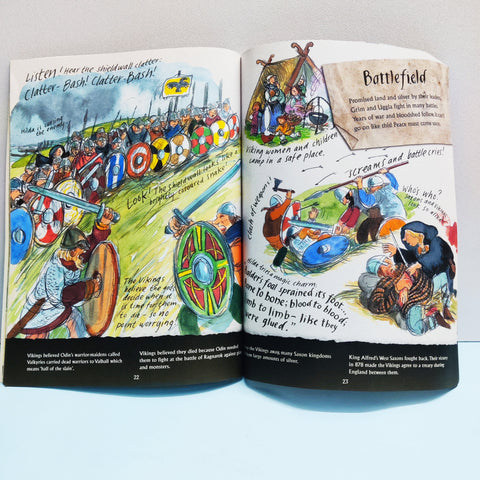 Listen! Hear the shieldwall clatter-
Clatter-Bash! Clatter-Bash!
Hilda is calling
the enemy
Look! The shieldwall looks like a
brightly coloured snake!
The Vikings
believe the gods
decide when it
is time for them
to die – so no
point worrying!
Vikings believed Odin's warrior-maidens called
Valkyries carried dead warriors to Valhall which
means 'hall of the slain'.
Vikings believed they died because Odin needed
them to fight at the battle of Ragnarok against
and monsters.
22
Battlefield
Promised land and silver by their leaders,
Grim and Uggla fight in many battles.
Years of war and bloodshed follow. It can't
go on like this! Peace must come soon.
Viking women and children
camp in a safe place.
Screams and battle cries!
Clash of weapons!
Who's who?
look so alike
Hilda tries a magic charm:
foot sprained its foot...
bone to bone; blood to blood;
limb to limb – like they
were glued."
the Vikings away, many Saxon kingdoms
large amounts of silver.
King Alfred's West Saxons fought back. Their victory
in 878 made the Vikings agree to a treaty dividing
England between them.
23